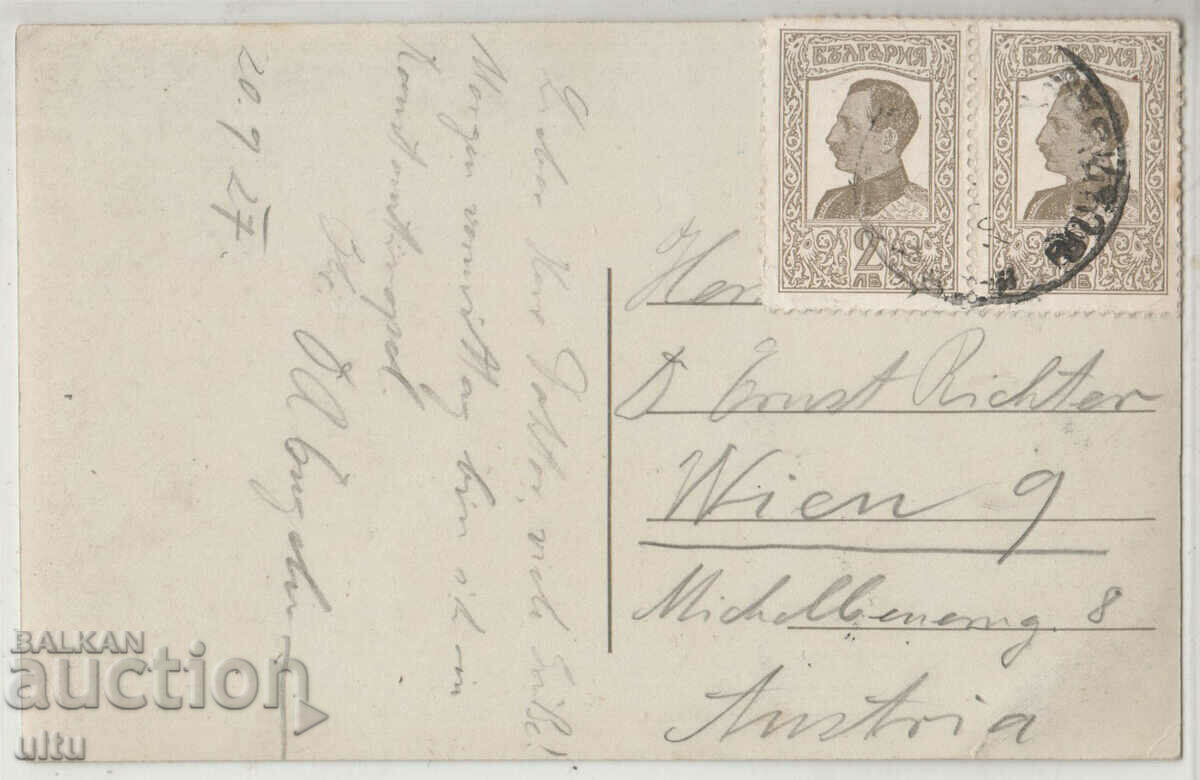 Lieber Herr Doktor, viele Grüße!
Morgen vormittag bin ich in
Konstantinopel.
Ihr
20. 9. 27
БЪЛГАРИЯ
2
ЛВ
БЪЛГАРИЯ
ЛВ
Herr
D Ernst Richter
Wien 9
Michelbeuerng. 8
Austria
BALKAN
auction
ultu